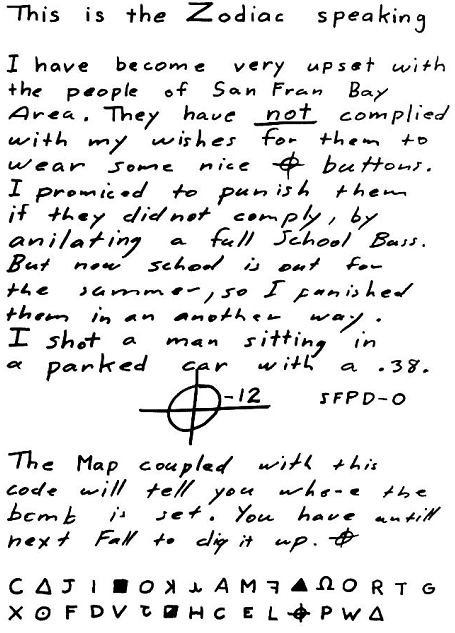 This is the Zodiac speaking
I have become very upset with
the people of San Fran Bay
Area. They have not complied
with my wishes for them to
wear some nice ⌖ buttons.
I promiced to punish them
if they did not comply, by
anilating a full School Buss.
But now school is out for
the summer, so I punished
them in an another way.
I shot a man sitting in
a parked car with a .38.
⌖-12 SFPD-0
The Map coupled with this
code will tell you who-e the
bomb is set. You have antill
next Fall to dig it up. ⌖
C Δ J I ■ O ꓘ ⅄ A M ꟻ ▲ Ω O R T G
X ⊙ F D V Ʇ ◪ H C E L ⌖ P W Δ